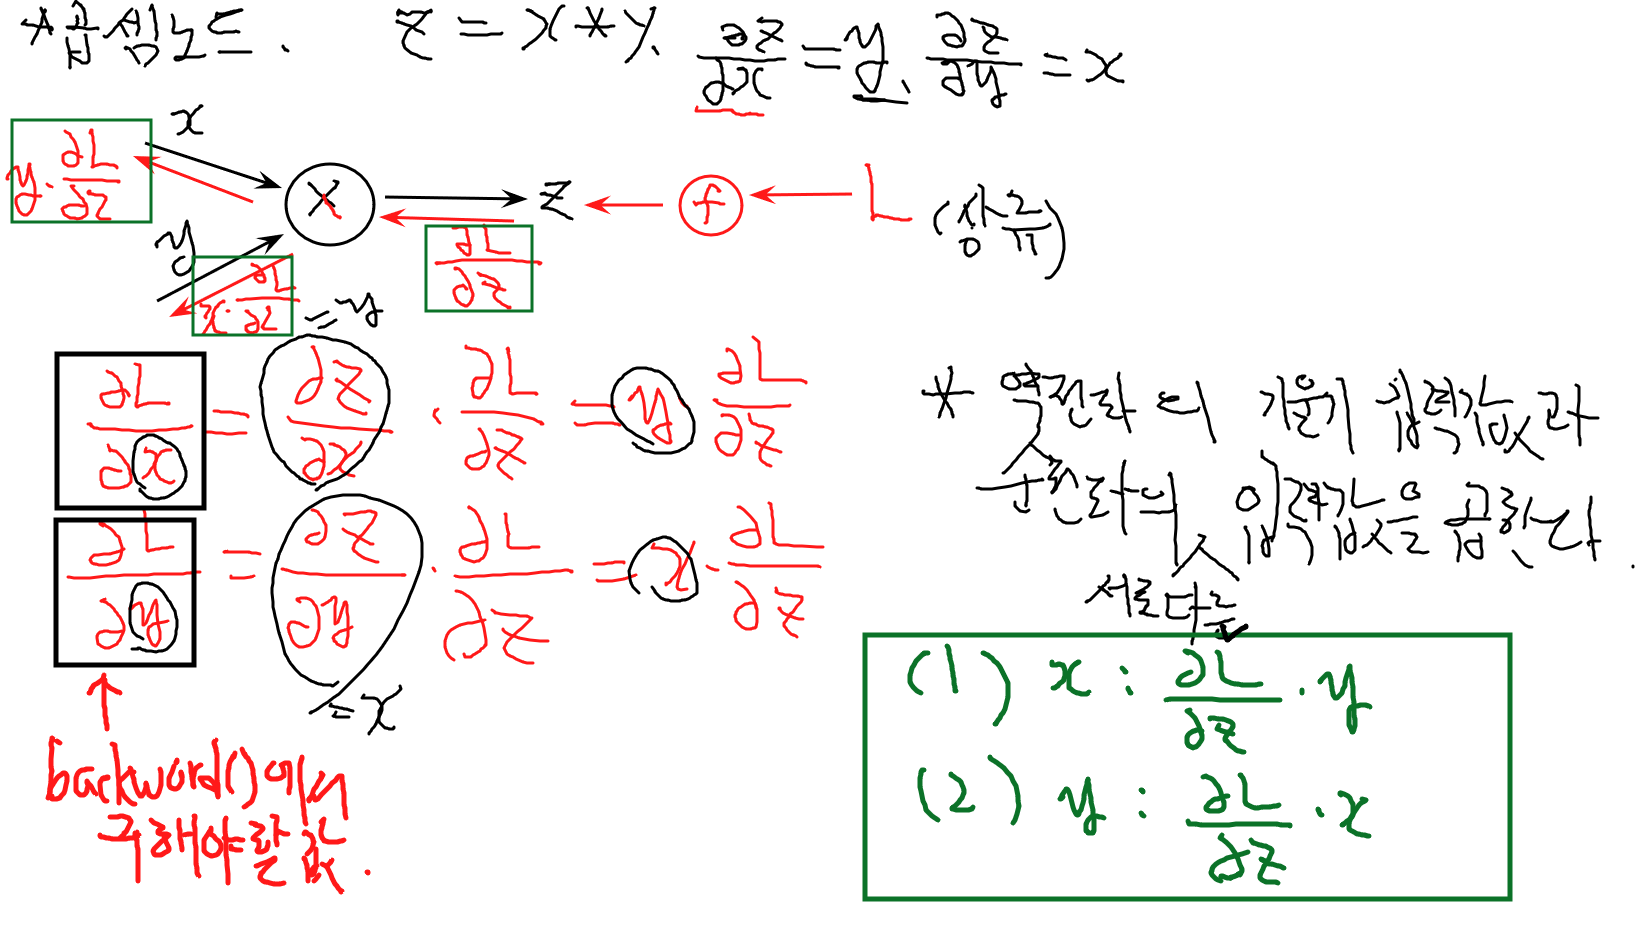 *곱셈노드. z = x * y. ∂z/∂x = y. ∂z/∂y = x
x
y · ∂L/∂z
X
z
f
L (상류)
y
x · ∂L/∂z
∂L/∂z
= y
∂L/∂x = ∂z/∂x · ∂L/∂z = y ∂L/∂z
∂L/∂y = ∂z/∂y · ∂L/∂z = x · ∂L/∂z
= x
backword()에서
구해야할 값.
* 역전파의 기울기 입력값과
순전파의 입력값을 곱한다.
서로다른
(1) x : ∂L/∂z · y
(2) y : ∂L/∂z · x